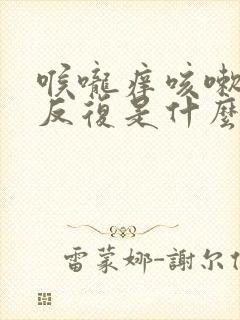 喉嚨痒咳嗽
反復是什麼
雷蒙娜-謝尔